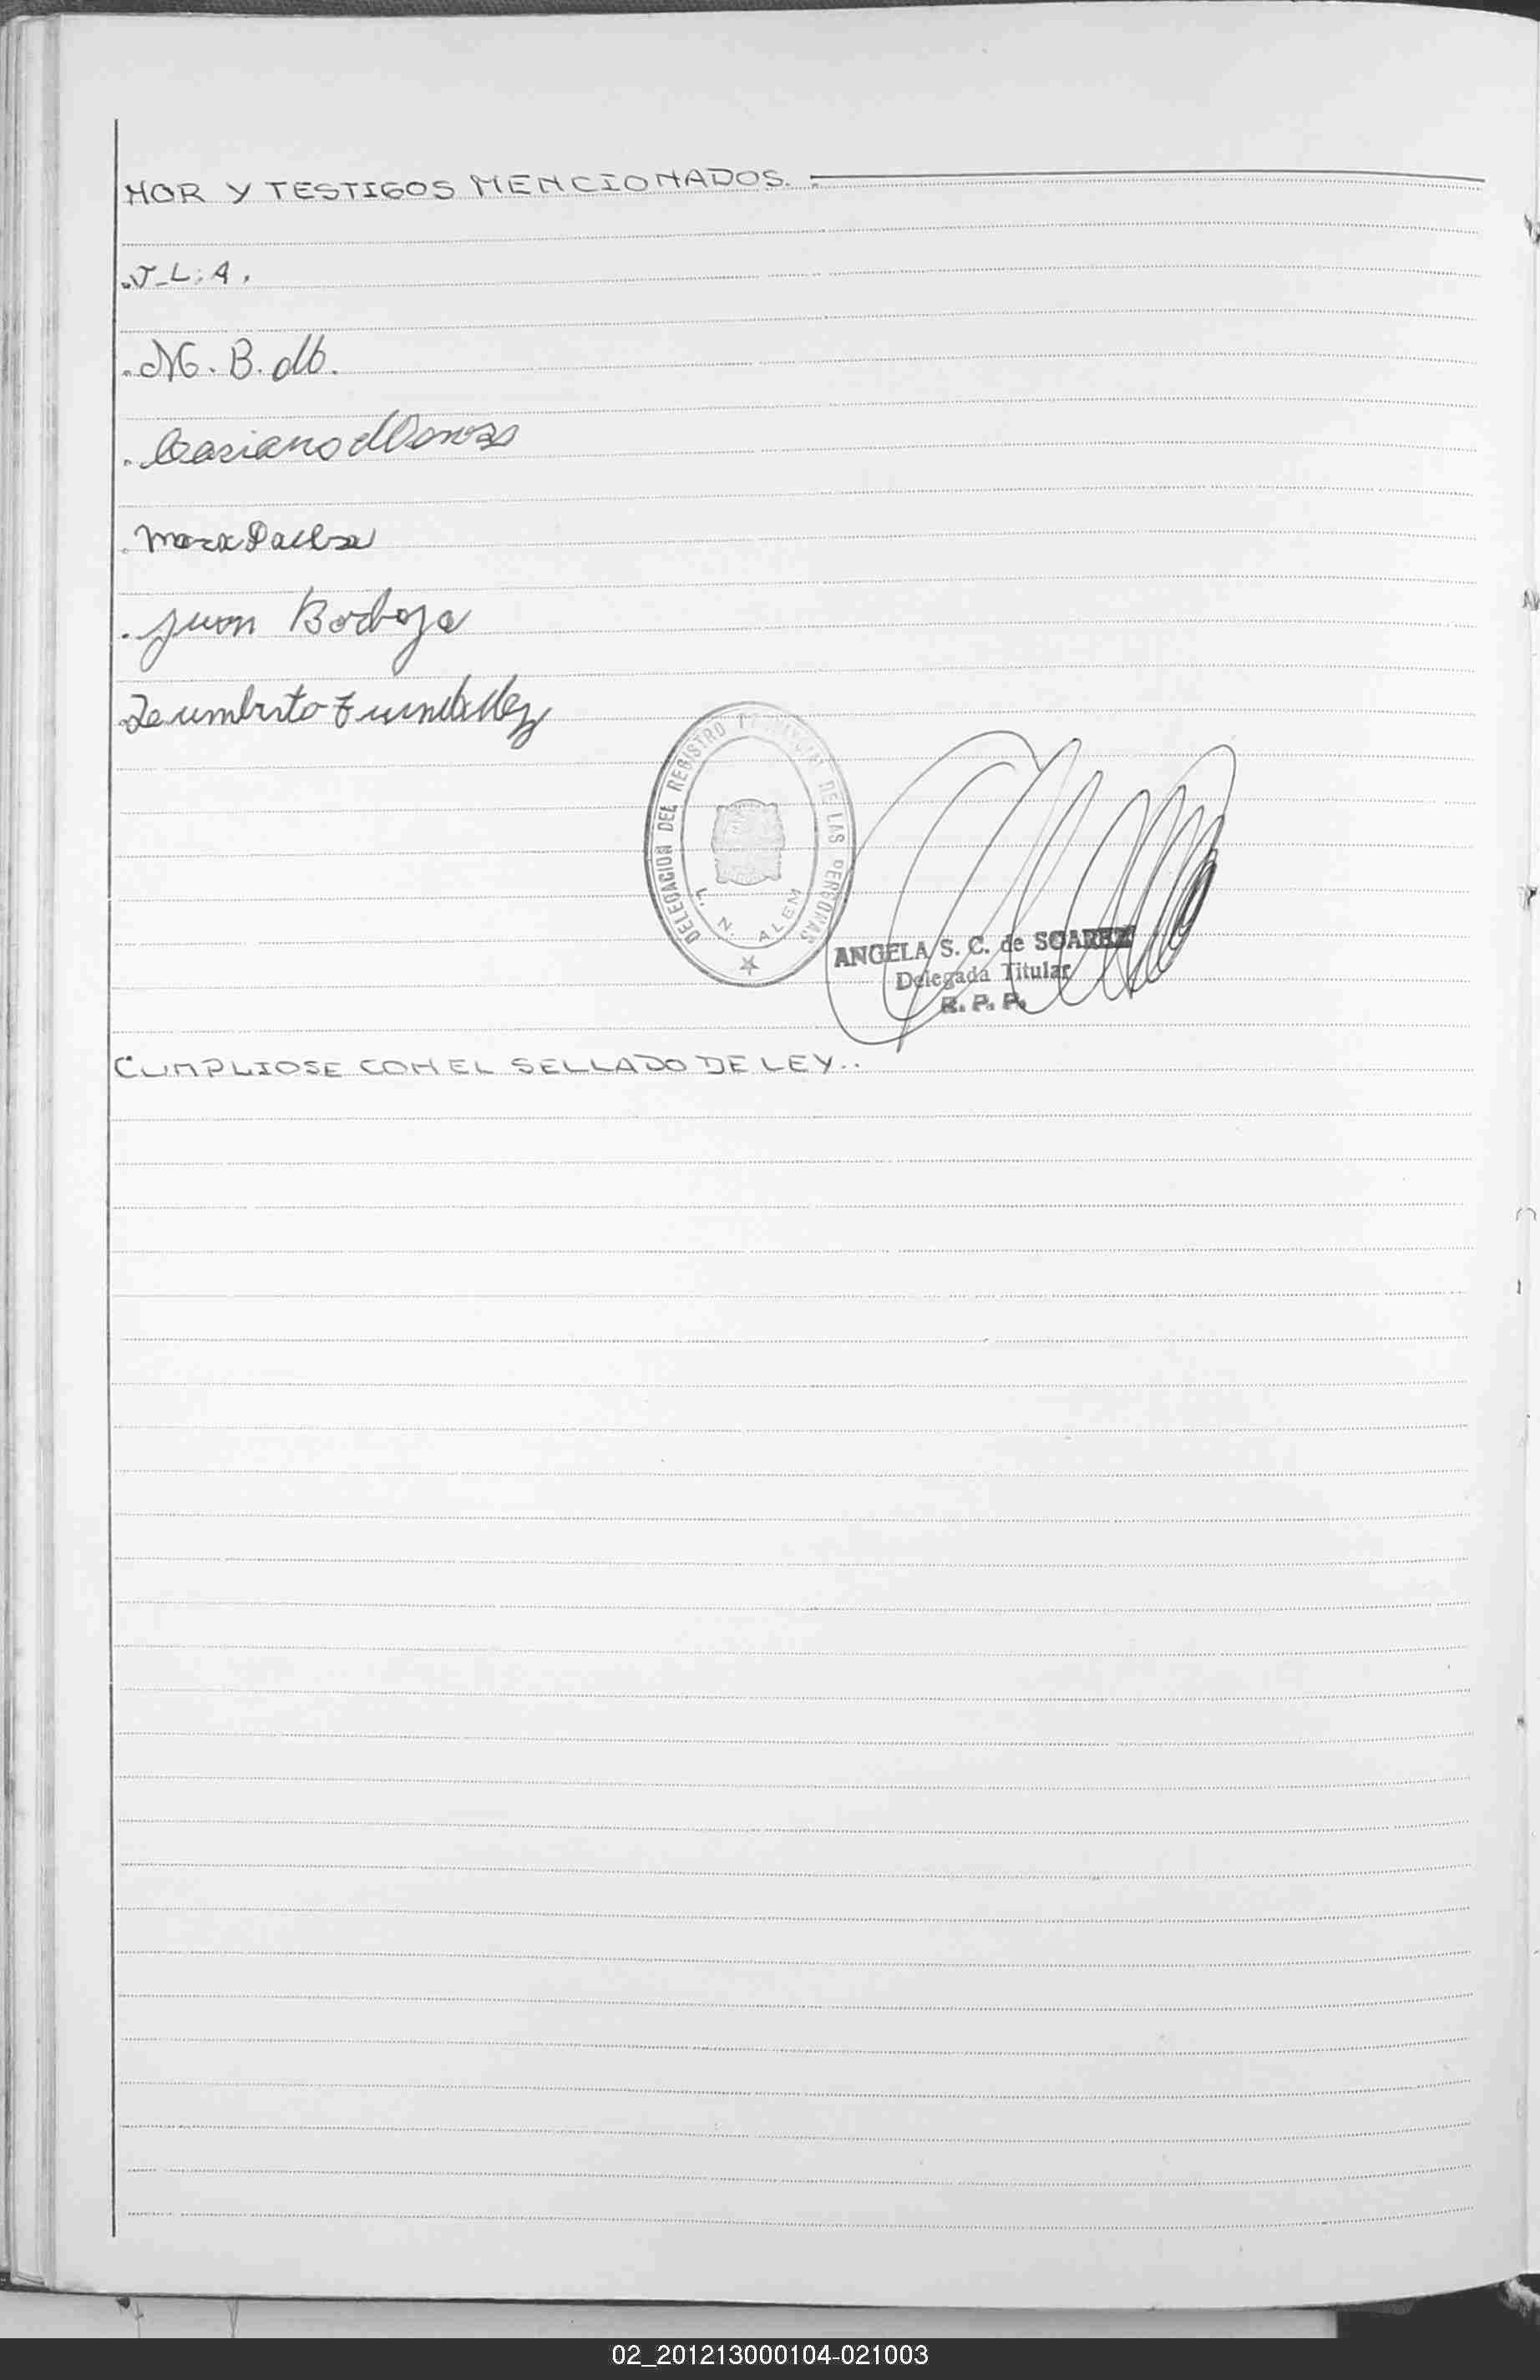 NOR Y TESTIGOS MENCIONADOS.
.J.L.A.
.M.B.
.Casiano
.
.Juan Borboza
DELEGACION DEL REGISTRO DE LAS PERSONAS
L. N. ALEM
ANGELA S. C. de SOAREZ
Delegada Titular
R. P. P.
CUMPLIOSE CON EL SELLADO DE LEY..
02_201213000104-021003